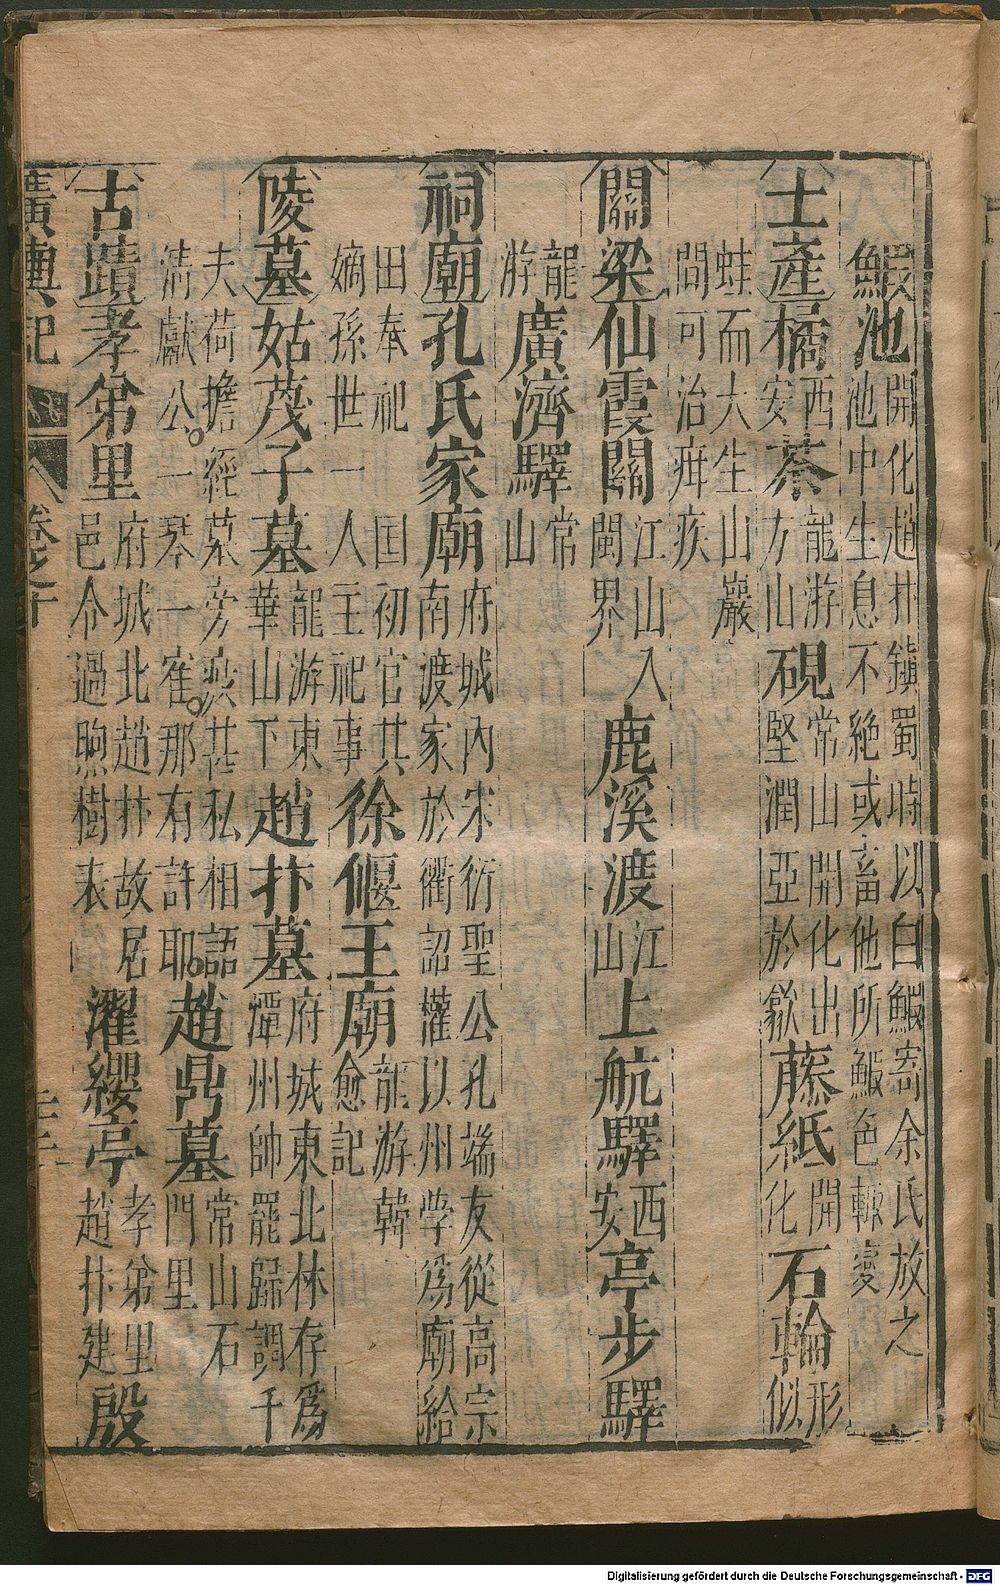 鰕池開化趙抃鎮蜀時以白鰕寄余氏放之池中生息不絕或畜他所鰕色輙變
土產橘西安茶龍游方山硯常山開化出堅潤亞於歙藤紙開化石輪形似
蛙而大生山巖間可治疳疾
關梁仙霞關江山入閩界鹿溪渡江山上航驛西安亭步驛
龍游廣濟驛常山
祠廟孔氏家廟府城內宋衍聖公孔端友從高宗南渡家於衢詔權以州學爲廟給
田奉祀囯初官其嫡孫世一人主祀事徐偃王廟龍游韓愈記
陵墓姑茂子墓龍游東華山下趙抃墓府城東北林存爲潭州帥罷歸調千
夫荷擔經墓旁
私相語
清獻公一琴一寉那有許耶趙鼎墓常山石門里
古蹟孝弟里府城北趙抃故居邑令過煦樹表濯纓亭孝弟里趙抃建殷
廣輿記
卷之十
Digitalisierung gefördert durch die Deutsche Forschungsgemeinschaft - DFG